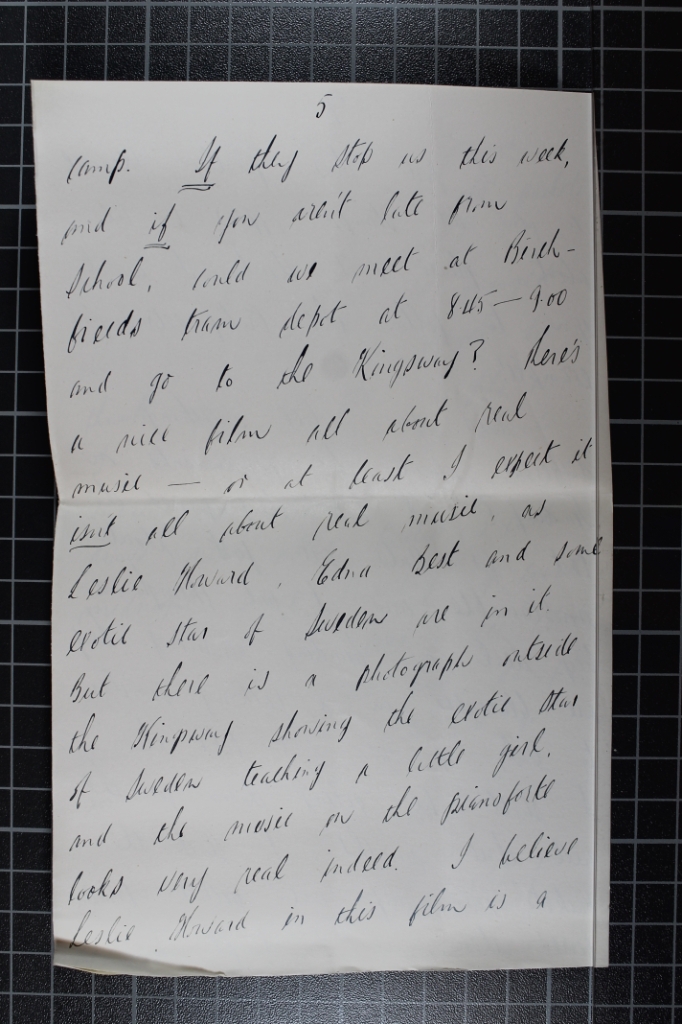 5
camp. If they stop us this week,
and if you aren't late from
School, could we meet at Birch-
fields tram depot at 8.45 — 9.00
and go to the Kingsway? There's
a nice film all about real
music — or at least I expect it
isn't all about real music, as
Leslie Howard, Edna Best and some
exotic star of Sweden are in it.
But there is a photograph outside
the Kingsway showing the exotic star
of Sweden teaching a little girl,
and the music on the pianoforte
looks very real indeed. I believe
Leslie Howard in this film is a